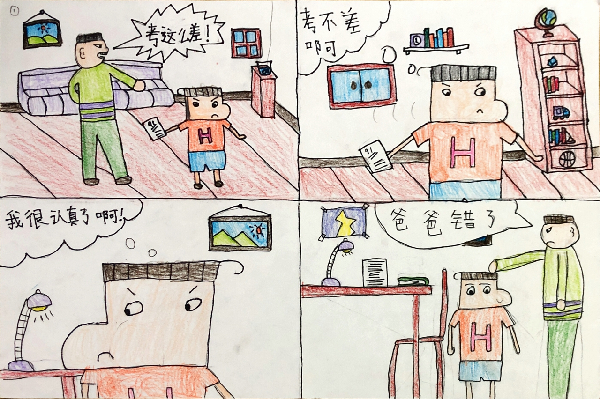 ①
考这么差!
H
考不差
啊
91
H
我很认真了啊!
H
爸爸错了
H